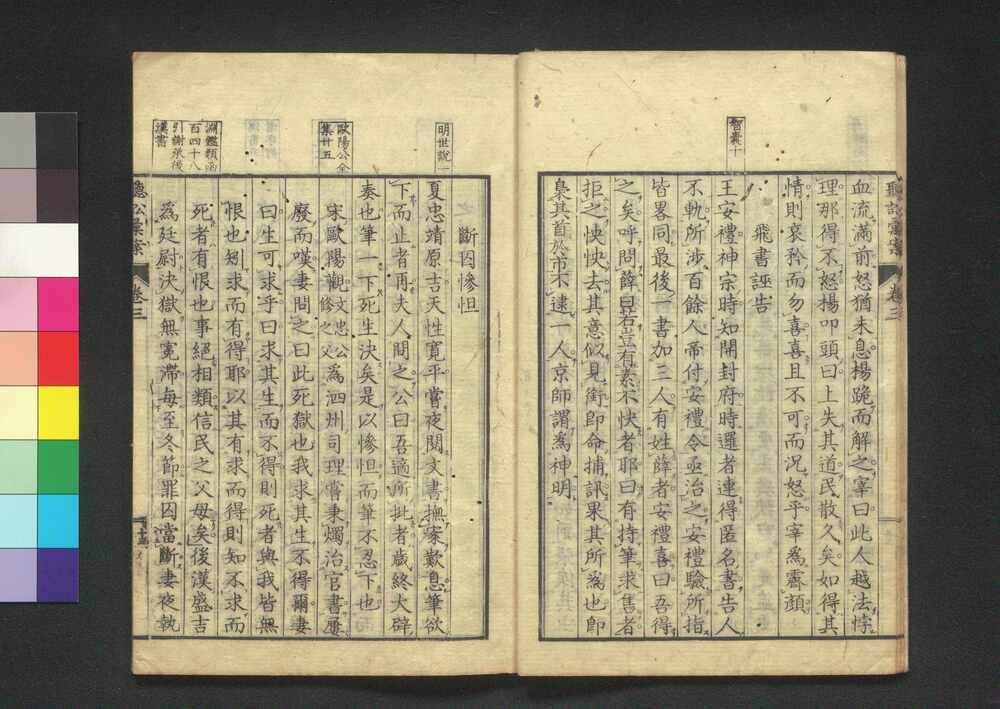 智囊十
血流滿前怒猶未息楊跪而解之宰曰此人越法悖
理那得不怒楊叩頭曰上失其道民散久矣如得其
情則哀矜而勿喜喜且不可而況怒乎宰為霽顔
飛書誣告
王安禮神宗時知開封府時邏者連得匿名書告人
不軌所涉百餘人帝付安禮令亟治之安禮驗所指
皆畧同最後一書加三人有姓薛者安禮喜曰吾得
之矣呼問薛曰若豈有素不快者耶曰有持筆求售者
拒之怏怏去其意似見銜即命捕訊果其所為也即
梟其首於市不逮一人京師謂為神明
明世說一
歐陽公全
集廿五
淵鑑類函
百四十八
引謝承後
漢書
斷囚慘怛
夏忠靖原吉天性寬平嘗夜閱文書撫案歎息筆欲
下而止者再夫人問之公曰吾適所批者歲終大辟
奏也筆一下死生決矣是以慘怛而筆不忍下也
宋歐陽觀文忠公修之父為泗州司理嘗秉燭治官書屢
廢而嘆妻問之曰此死獄也我求其生不得爾妻
曰生可求乎曰求其生而不得則死者與我皆無
恨也矧求而有得耶以其有求而得則知不求而
死者有恨也事絕相類信民之父母矣後漢盛吉
為廷尉決獄無冤滯每至冬節罪囚當斷妻夜執
聽訟彙案
卷三